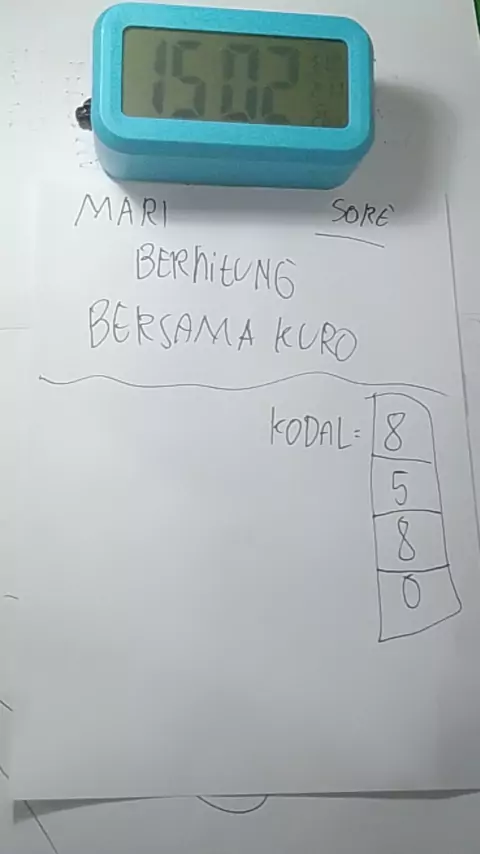 15:02
MARI
SORE
BERHITUNG
BERSAMA KURO
KODAL=
8
5
8
0